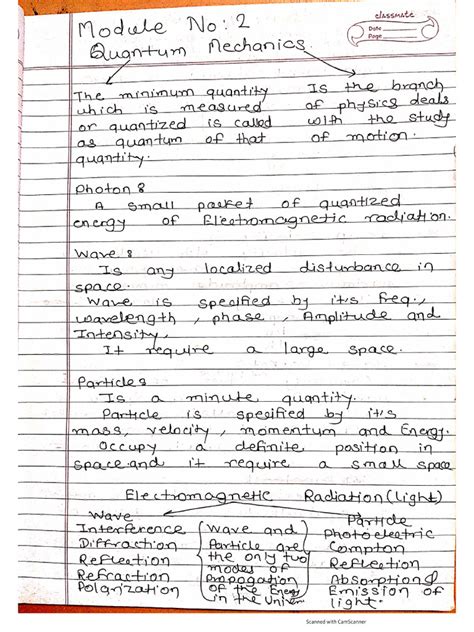 classmate
Date
Page
Module No: 2
Quantum Mechanics.
The minimum quantity
which is measured
or quantized is called
as quantum of that
quantity.
Is the branch
of physics deals
with the study
of motion.
Photon :
A small packet of quantized
energy of Electromagnetic radiation.
Wave :
Is any localized disturbance in
space.
Wave is specified by it's freq.,
wavelength, phase, Amplitude and
Intensity,
It require a large space.
Particle :
Is a minute quantity.
Particle is spesified by it's
mass, velocity, momentum and Energy.
Occupy a definite position in
space and it require a small space
Electromagnetic Radiation (light)
Wave
Interference
Diffraction
Reflection
Refraction
Polarization
(Wave and
Particle are
the only two
modes of
Propogation
of the Energy
in the Univers)
Particle
Photoelectric
Compton
Reflection
Absorption
Emission of
light.
Scanned with CamScanner